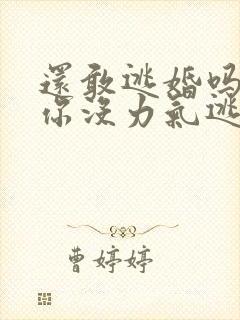 還敢逃婚吗
你没力氣逃
曹婷婷